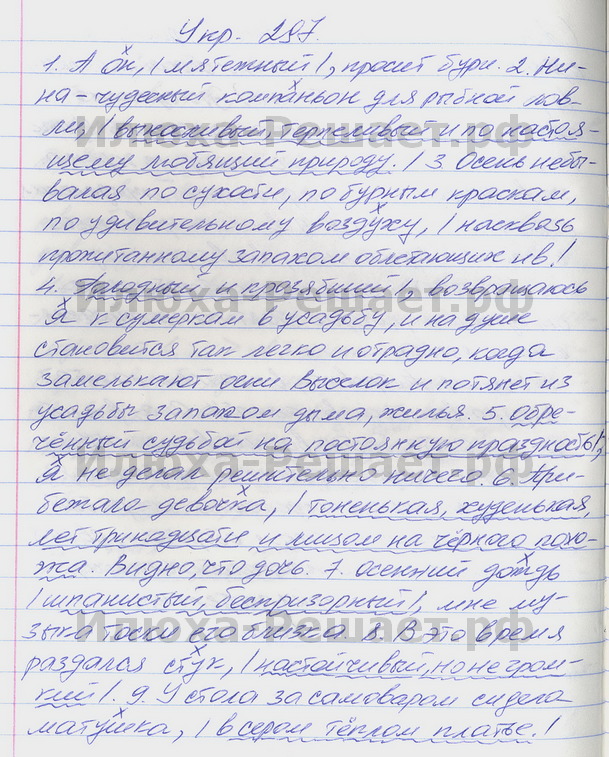 Упр. 297.
1. А он, | мятежный |, просит бури. 2. Ни-
на – чудесный компаньон для рыбной лов-
ли, | выносливый, терпеливый и по настоя-
щему любящий природу. | 3. Осень небы-
валая по сухости, по бурным краскам,
по удивительному воздуху, | насквозь
пропитанному запахом облетающих ив. |
4. Голодный и прозябший |, возвращаюсь
я к сумеркам в усадьбу, и на душе
становится так легко и отрадно, когда
замелькают огни Выселок и потянет из
усадьбы запахом дыма, жилья. 5. Обре-
чённый судьбой на постоянную праздность |,
я не делал решительно ничего. 6. При-
бежала девочка, | тоненькая, худенькая,
лет тринадцати и лицом на чёрного похо-
жа. Видно, что дочь. 7. Осенний дождь
| шпанистый, беспризорный |, мне му-
зыка тоски его близка. 8. В это время
раздался стук, | настойчивый, но не гром-
кий |. 9. У стола за самоваром сидела
матушка, | в сером тёплом платье. |
Илюха-Решает.рф
Илюха-Решает.рф
Илюха-Решает.рф
Илюха-Решает.рф
Илюха-Решает.рф